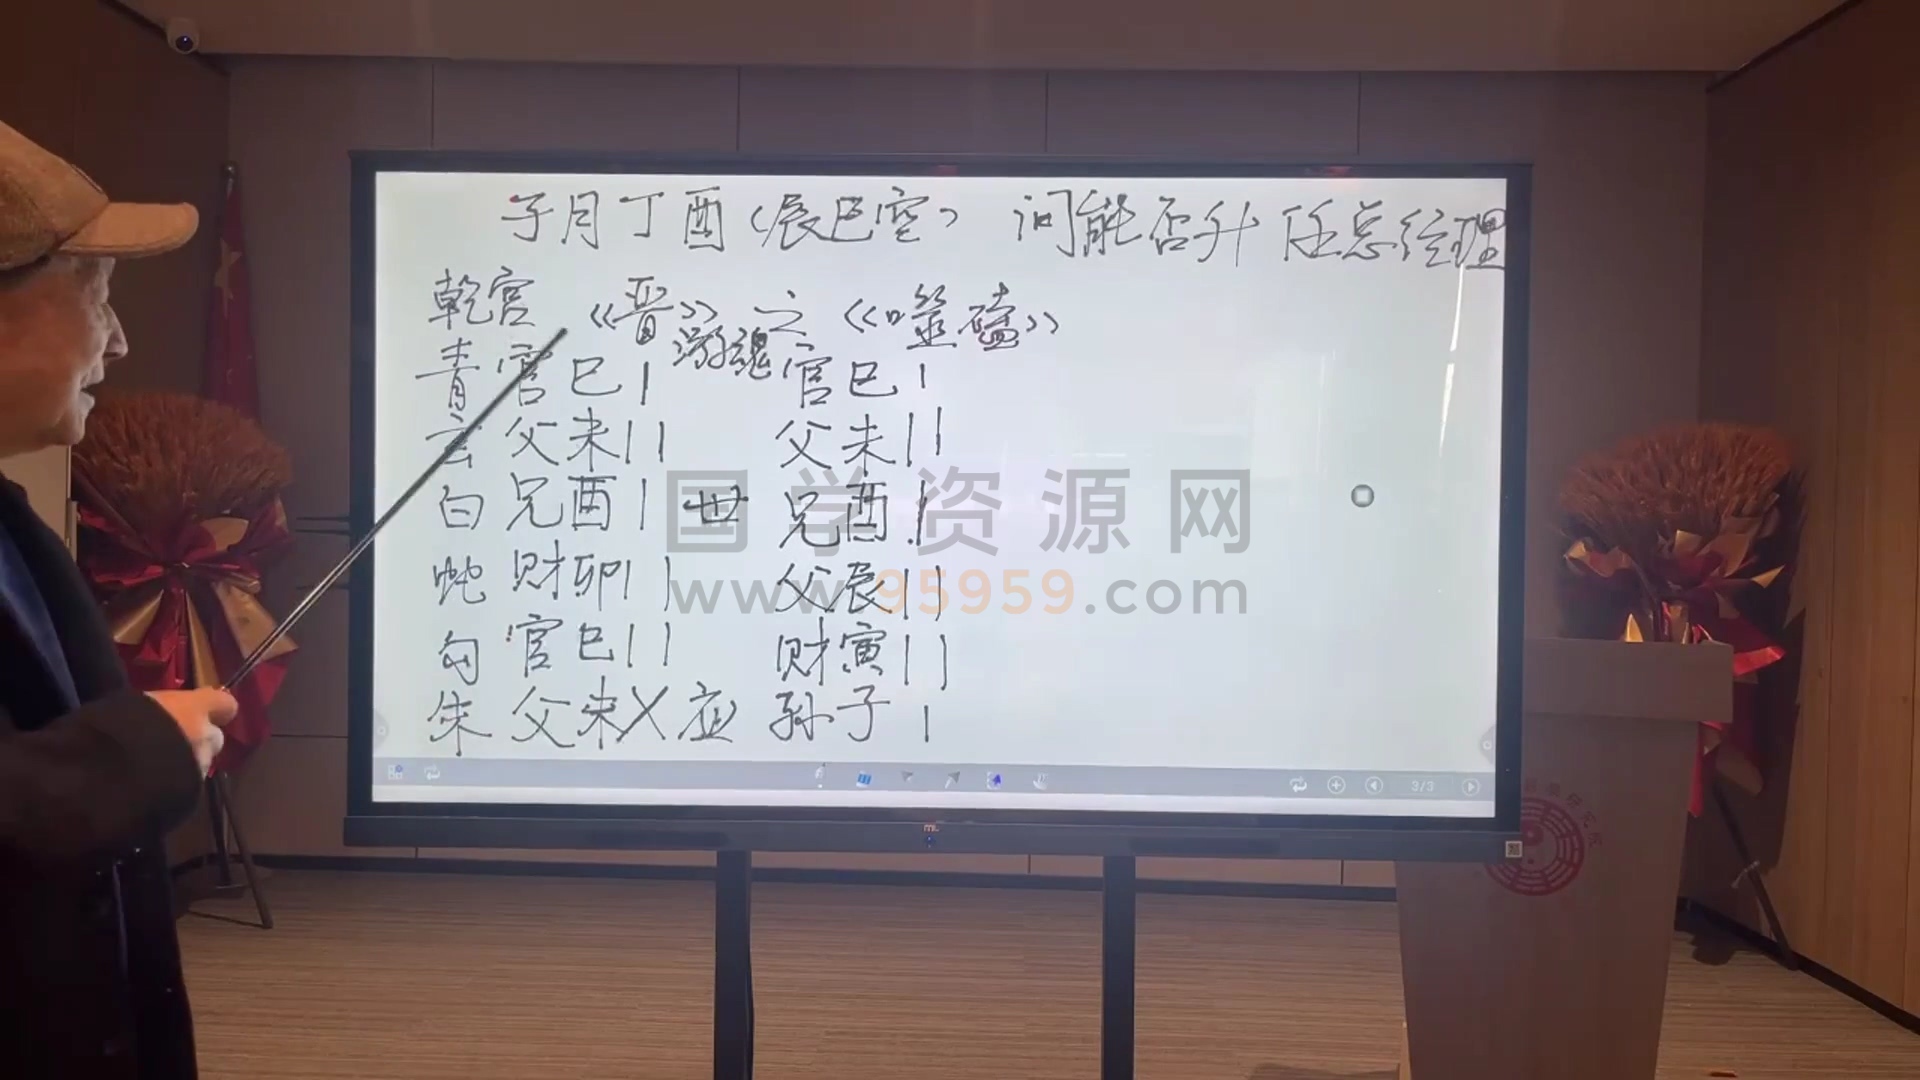 子月丁酉（辰巳空） 问能否升任总经理
乾宫 《晋》 之 《噬磕》
游魂
青 官巳| 官巳|
玄 父未|| 父未||
白 兄酉| 世 兄酉|
蛇 财卯|| 父辰||
勾 官巳|| 财寅||
朱 父未X 应 孙子|
国学资源网
www.95959.com
3/3
mi